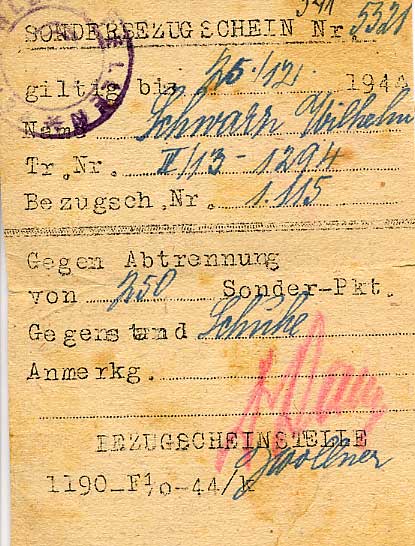 SONDERBEZUGSCHEIN Nr. 5321
giltig bis 25./12. 194
Name Schwarz Wilhelm
Tr.Nr. II/13-1294
Bezugsch.Nr. 1.115
Gegen Abtrennung
von 250 Sonder-Pkt.
Gegenstand Schuhe
Anmerkg.
BEZUGSCHEINSTELLE
1190-F1/0-44/K